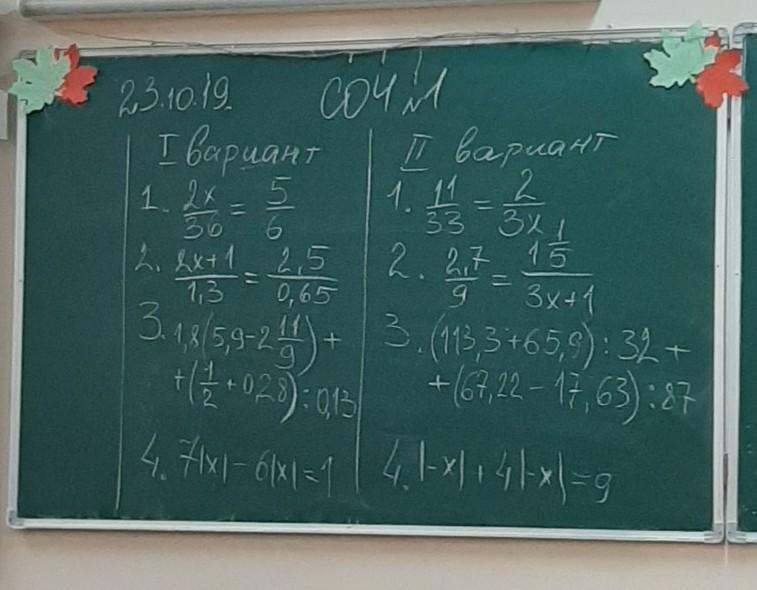 23.10.19. СОЧ №1
I вариант
1. 2x/36 = 5/6
2. 2x+1/1,3 = 2,5/0,65
3. 1,8(5,9-2 11/9)+
+(1/2+0,28):0,13
4. 7|x|-6|x|=1
II вариант
1. 11/33 = 2/3x
2. 2,7/9 = 1 1/5/3x+1
3. (113,3+65,9):32+
+(67,22-17,63):87
4. |-x|+4|-x|=9